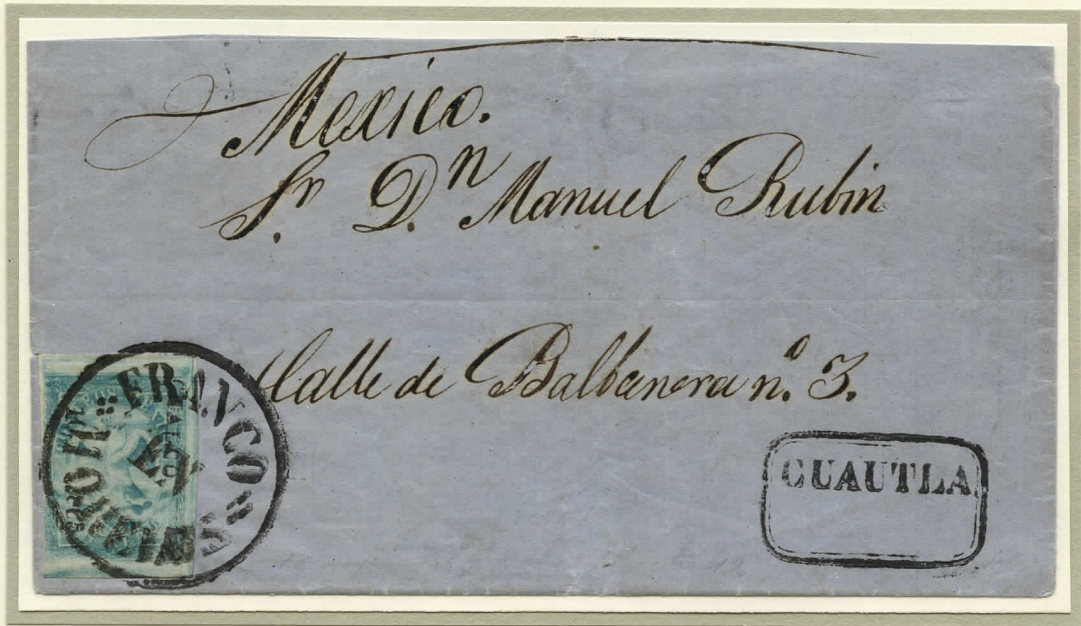 Mexico.
Sr. Dn. Manuel Rubin
Calle de Balbanera no. 3.
FRANCO
MORELOS
CUAUTLA